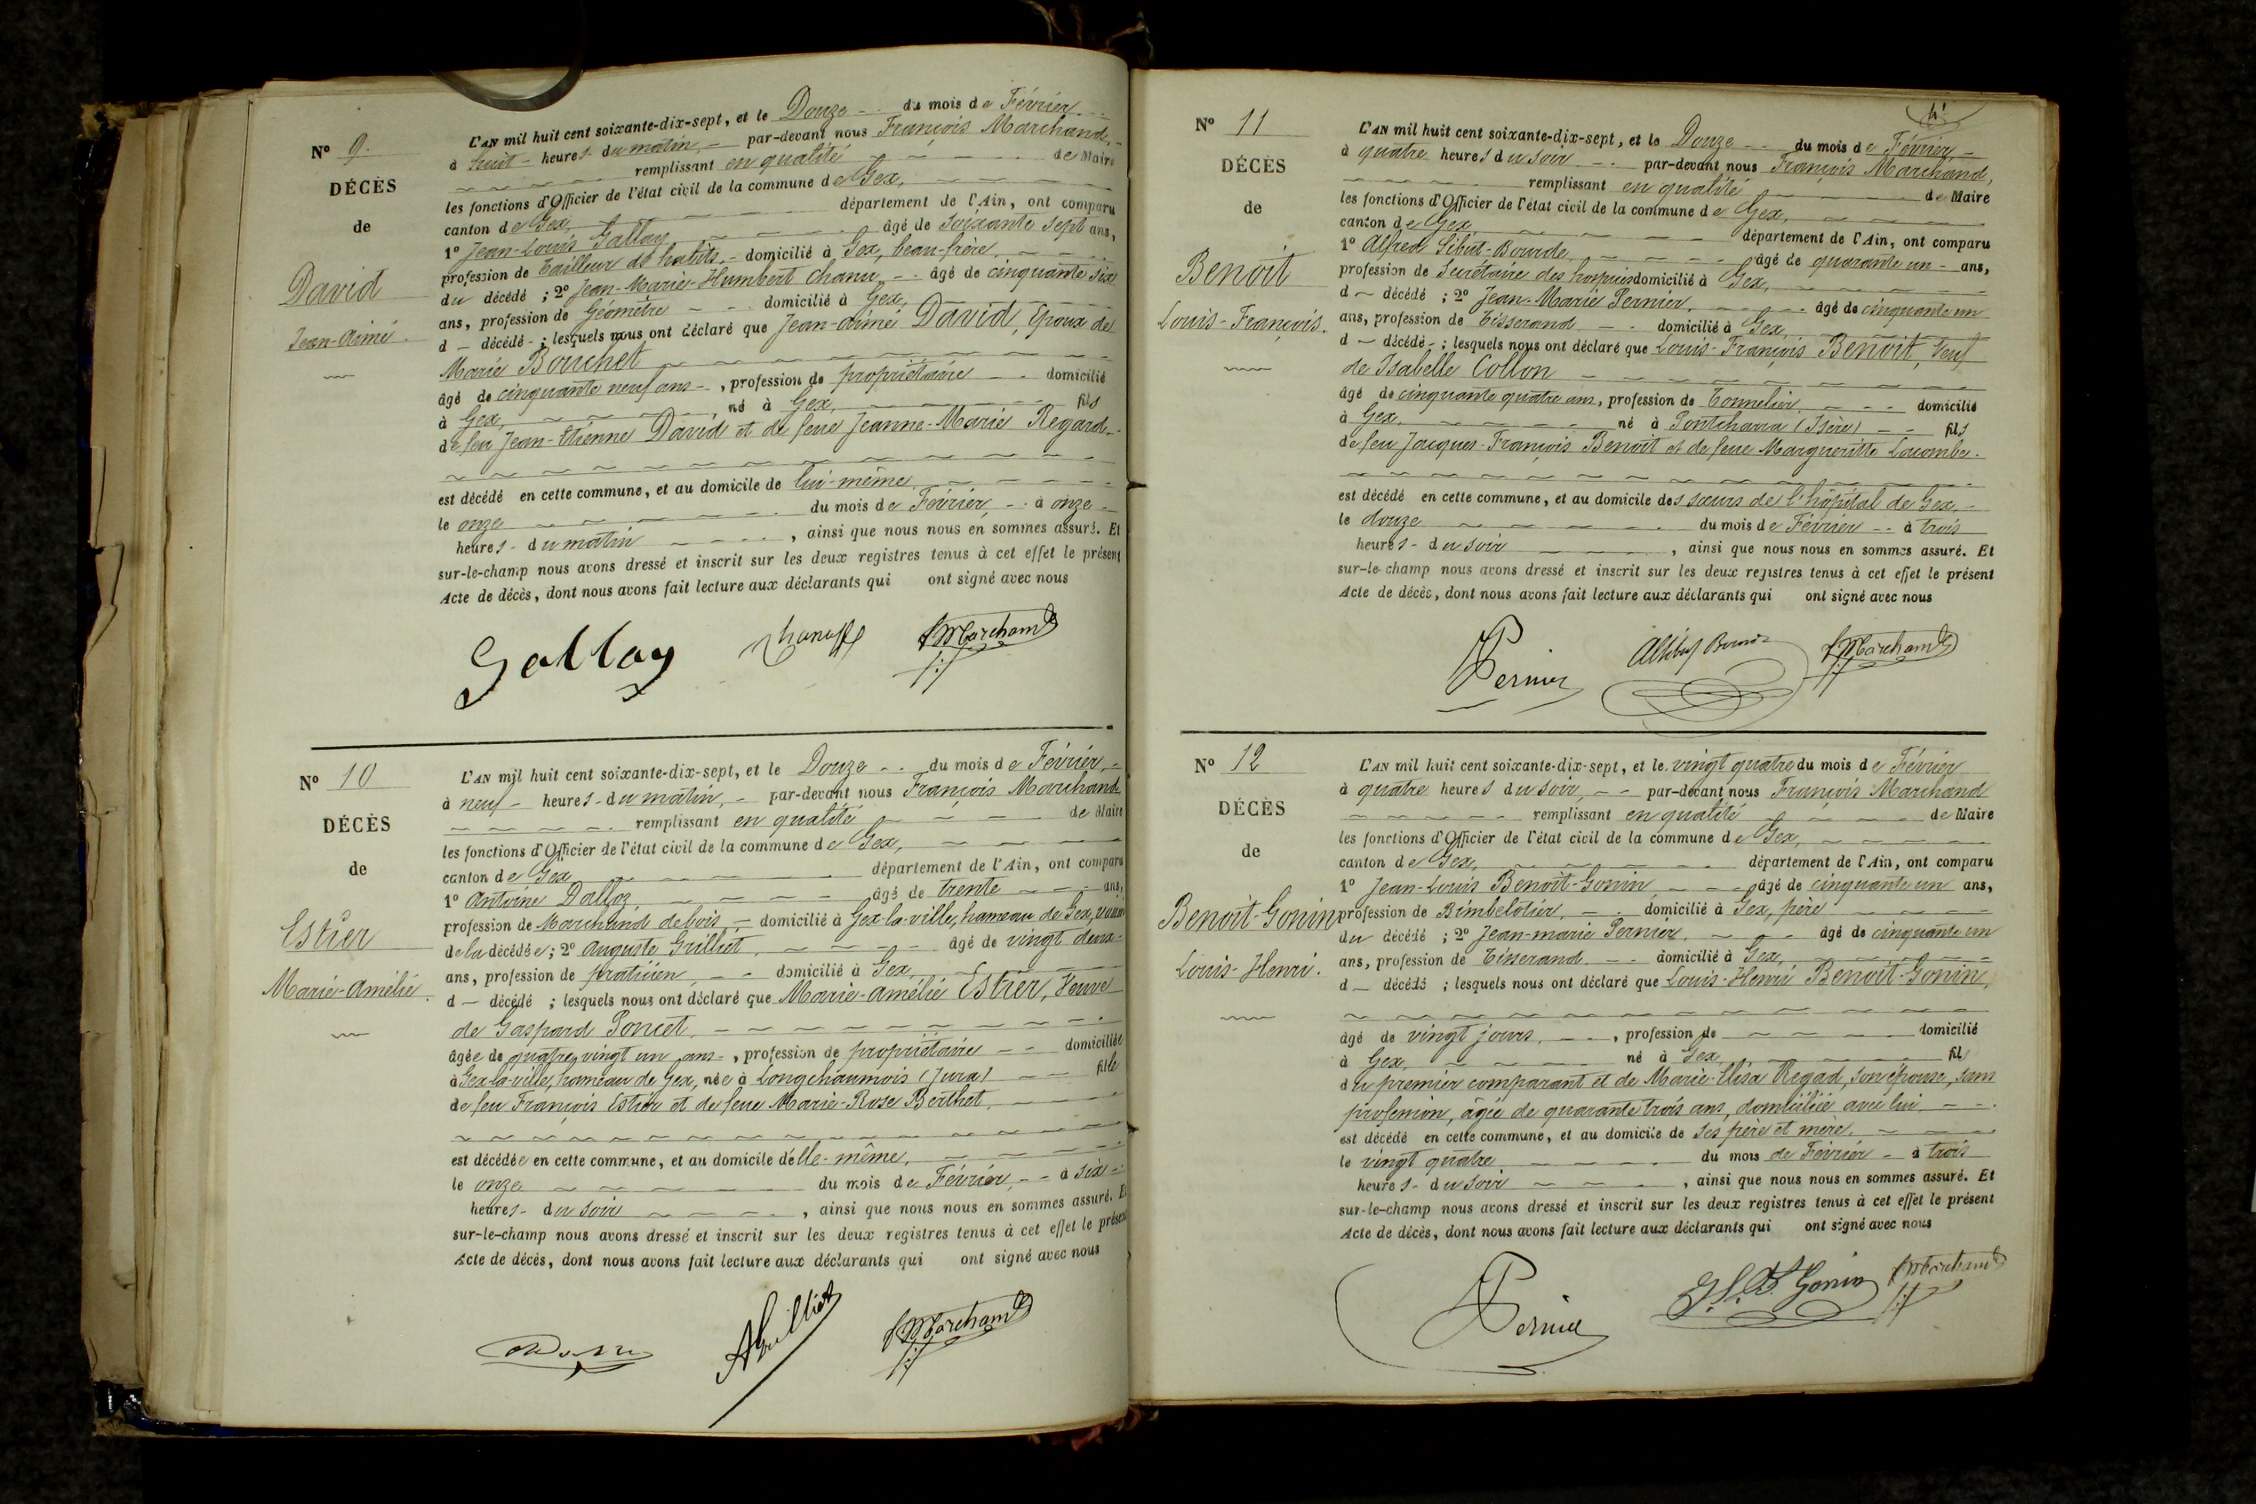 N° 9.
DÉCÈS
de
David
Jean-Aimé.
L'AN mil huit cent soixante-dix-sept, et le Douze du mois de Février
à huit heures du matin, par-devant nous François Marchand,
remplissant en qualité de Maire
les fonctions d'Officier de l'état civil de la commune de Gex,
canton de Gex, département de l'Ain, ont comparu
1° Jean-Louis Gallay âgé de soixante sept ans,
profession de Tailleur de habits, domicilié à Gex, beau-frère
du décédé ; 2° Jean-Marie-Humbert Chanu, âgé de cinquante six
ans, profession de Géomètre domicilié à Gex,
d décédé ; lesquels nous ont déclaré que Jean-Aimé David, Epoux de
Marie Bouchet
âgé de cinquante neuf ans, profession de propriétaire domicilié
à Gex, né à Gex, fils
de feu Jean-Etienne David et de feue Jeanne-Marie Regard
est décédé en cette commune, et au domicile de lui-même
le onze du mois de Février, à onze
heures du matin, ainsi que nous nous en sommes assuré. Et
sur-le-champ nous avons dressé et inscrit sur les deux registres tenus à cet effet le présent
Acte de décès, dont nous avons fait lecture aux déclarants qui ont signé avec nous
Gallay Marchand
N° 10
DÉCÈS
de
Estier
Marie-Amélie.
L'AN mil huit cent soixante-dix-sept, et le Douze du mois de Février,
à neuf heures du matin, par-devant nous François Marchand
remplissant en qualité de Maire
les fonctions d'Officier de l'état civil de la commune de Gex,
canton de Gex département de l'Ain, ont comparu
1° Antoine Dalloz âgé de trente ans,
profession de Marchand de bois, domicilié à Gex-la-ville, hameau de Gex, voisin
de la décédée ; 2° Auguste Grilliet, âgé de vingt deux
ans, profession de praticien, domicilié à Gex,
d décédé ; lesquels nous ont déclaré que Marie-Amélie Estier, Veuve
de Gaspard Poncet
âgée de quatre vingt un ans, profession de propriétaire domiciliée
à Gex-la-ville, hameau de Gex, née à Longchaumois (Jura) fille
de feu François Estier et de feue Marie-Rose Berthet
est décédée en cette commune, et au domicile d'elle-même,
le onze du mois de Février, à six
heures du soir, ainsi que nous nous en sommes assuré. Et
sur-le-champ nous avons dressé et inscrit sur les deux registres tenus à cet effet le présent
Acte de décès, dont nous avons fait lecture aux déclarants qui ont signé avec nous
AGrilliet Marchand
N° 11
DÉCÈS
de
Benoit
Louis-François.
L'AN mil huit cent soixante-dix-sept, et le Douze du mois de Février
à quatre heures du soir par-devant nous François Marchand,
remplissant en qualité de Maire
les fonctions d'Officier de l'état civil de la commune de Gex,
canton de Gex département de l'Ain, ont comparu
1° Alfred Sibut-Bourde, âgé de quarante un ans,
profession de Secrétaire des hospices domicilié à Gex,
d décédé ; 2° Jean-Marie Pernier, âgé de cinquante un
ans, profession de Tisserand domicilié à Gex,
d décédé ; lesquels nous ont déclaré que Louis-François Benoit, Veuf
de Isabelle Collon
âgé de cinquante quatre ans, profession de Tonnelier, domicilié
à Gex, né à Pontcharra (Isère) fils
de feu Jacques-François Benoit et de feue Margueritte Lacombe.
est décédé en cette commune, et au domicile des sœurs de l'hôpital de Gex,
le douze du mois de Février à trois
heures du soir, ainsi que nous nous en sommes assuré. Et
sur-le-champ nous avons dressé et inscrit sur les deux registres tenus à cet effet le présent
Acte de décès, dont nous avons fait lecture aux déclarants qui ont signé avec nous
Pernier Marchand
N° 12
DÉCÈS
de
Benoit-Gonin
Louis-Henri.
L'AN mil huit cent soixante-dix-sept, et le vingt quatre du mois de Février
à quatre heures du soir, par-devant nous François Marchand
remplissant en qualité de Maire
les fonctions d'Officier de l'état civil de la commune de Gex,
canton de Gex, département de l'Ain, ont comparu
1° Jean-Louis Benoit-Gonin âgé de cinquante un ans,
profession de Bimbelotier, domicilié à Gex, père
du décédé ; 2° Jean-marie Pernier, âgé de cinquante un
ans, profession de Tisserand domicilié à Gex,
d décédé ; lesquels nous ont déclaré que Louis-Henri Benoit-Gonin,
âgé de vingt jours, profession de domicilié
à Gex, né à Gex, fils
du premier comparant et de Marie-Elisa Regad, son épouse, sans
profession, âgée de quarante trois ans, domiciliée avec lui
est décédé en cette commune, et au domicile de ses père et mère.
le vingt quatre du mois de Février à trois
heures du soir, ainsi que nous nous en sommes assuré. Et
sur-le-champ nous avons dressé et inscrit sur les deux registres tenus à cet effet le présent
Acte de décès, dont nous avons fait lecture aux déclarants qui ont signé avec nous
Pernier J. L. B. Gonin Marchand